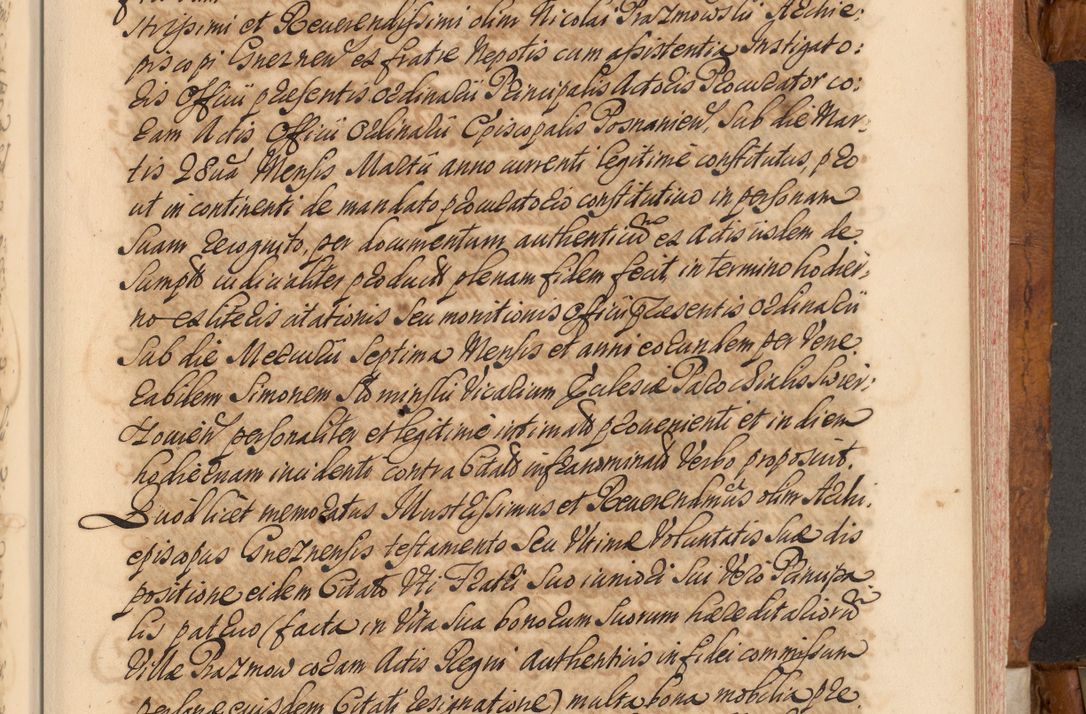 strissimi et Reuerendissimi olim Nicolai Prazmowski Archie:
piscopi Gneznen ex fratre Nepotis cum assistentia Instigato:
ris Officii præsentis ordinarii Principalis Actoris Procurator co:
ram Actis Officii Ordinarii Episcopalis Posnanien, Sub die Mar:
tis 28ua Mensis Martii anno currenti legitime constitutus, pro
ut in continenti de mandato procuratorio constitutiuo in personam
suam recognito, per documentum authenticũ ex Actis iisdem de
sumptũ iudicialiter productũ plenam fidem fecit, in termino hodier:
no ex literis citationis seu monitionis Officii præsentis ordinarii
Sub die Mercurii Septima Mensis et anni eorundem per Vene
rabilem Simonem Vicarium Ecclesiæ Parochialis Swier:
personaliter et legitime intimatũ prouenienti et in diem
hodiernam incidenti contra Citatũ infranominatũ Verbo proposuit.
Quod licet memoratus Illustrissimus et Reuerendissimus olim Archi:
episcopus Gneznensis testamento seu Vltimæ Voluntatis suæ dis
positione eidem Citato Vti Fratri suo iuniori sui Vero Principa
lis patruo (facta in Vita sua bonorum suorum hæreditariorũ
Villæ Prazmow coram Actis Regni Authenticis in fidei commissum
personæ eiusdem Citati resignatione) multa bona mobilia præ